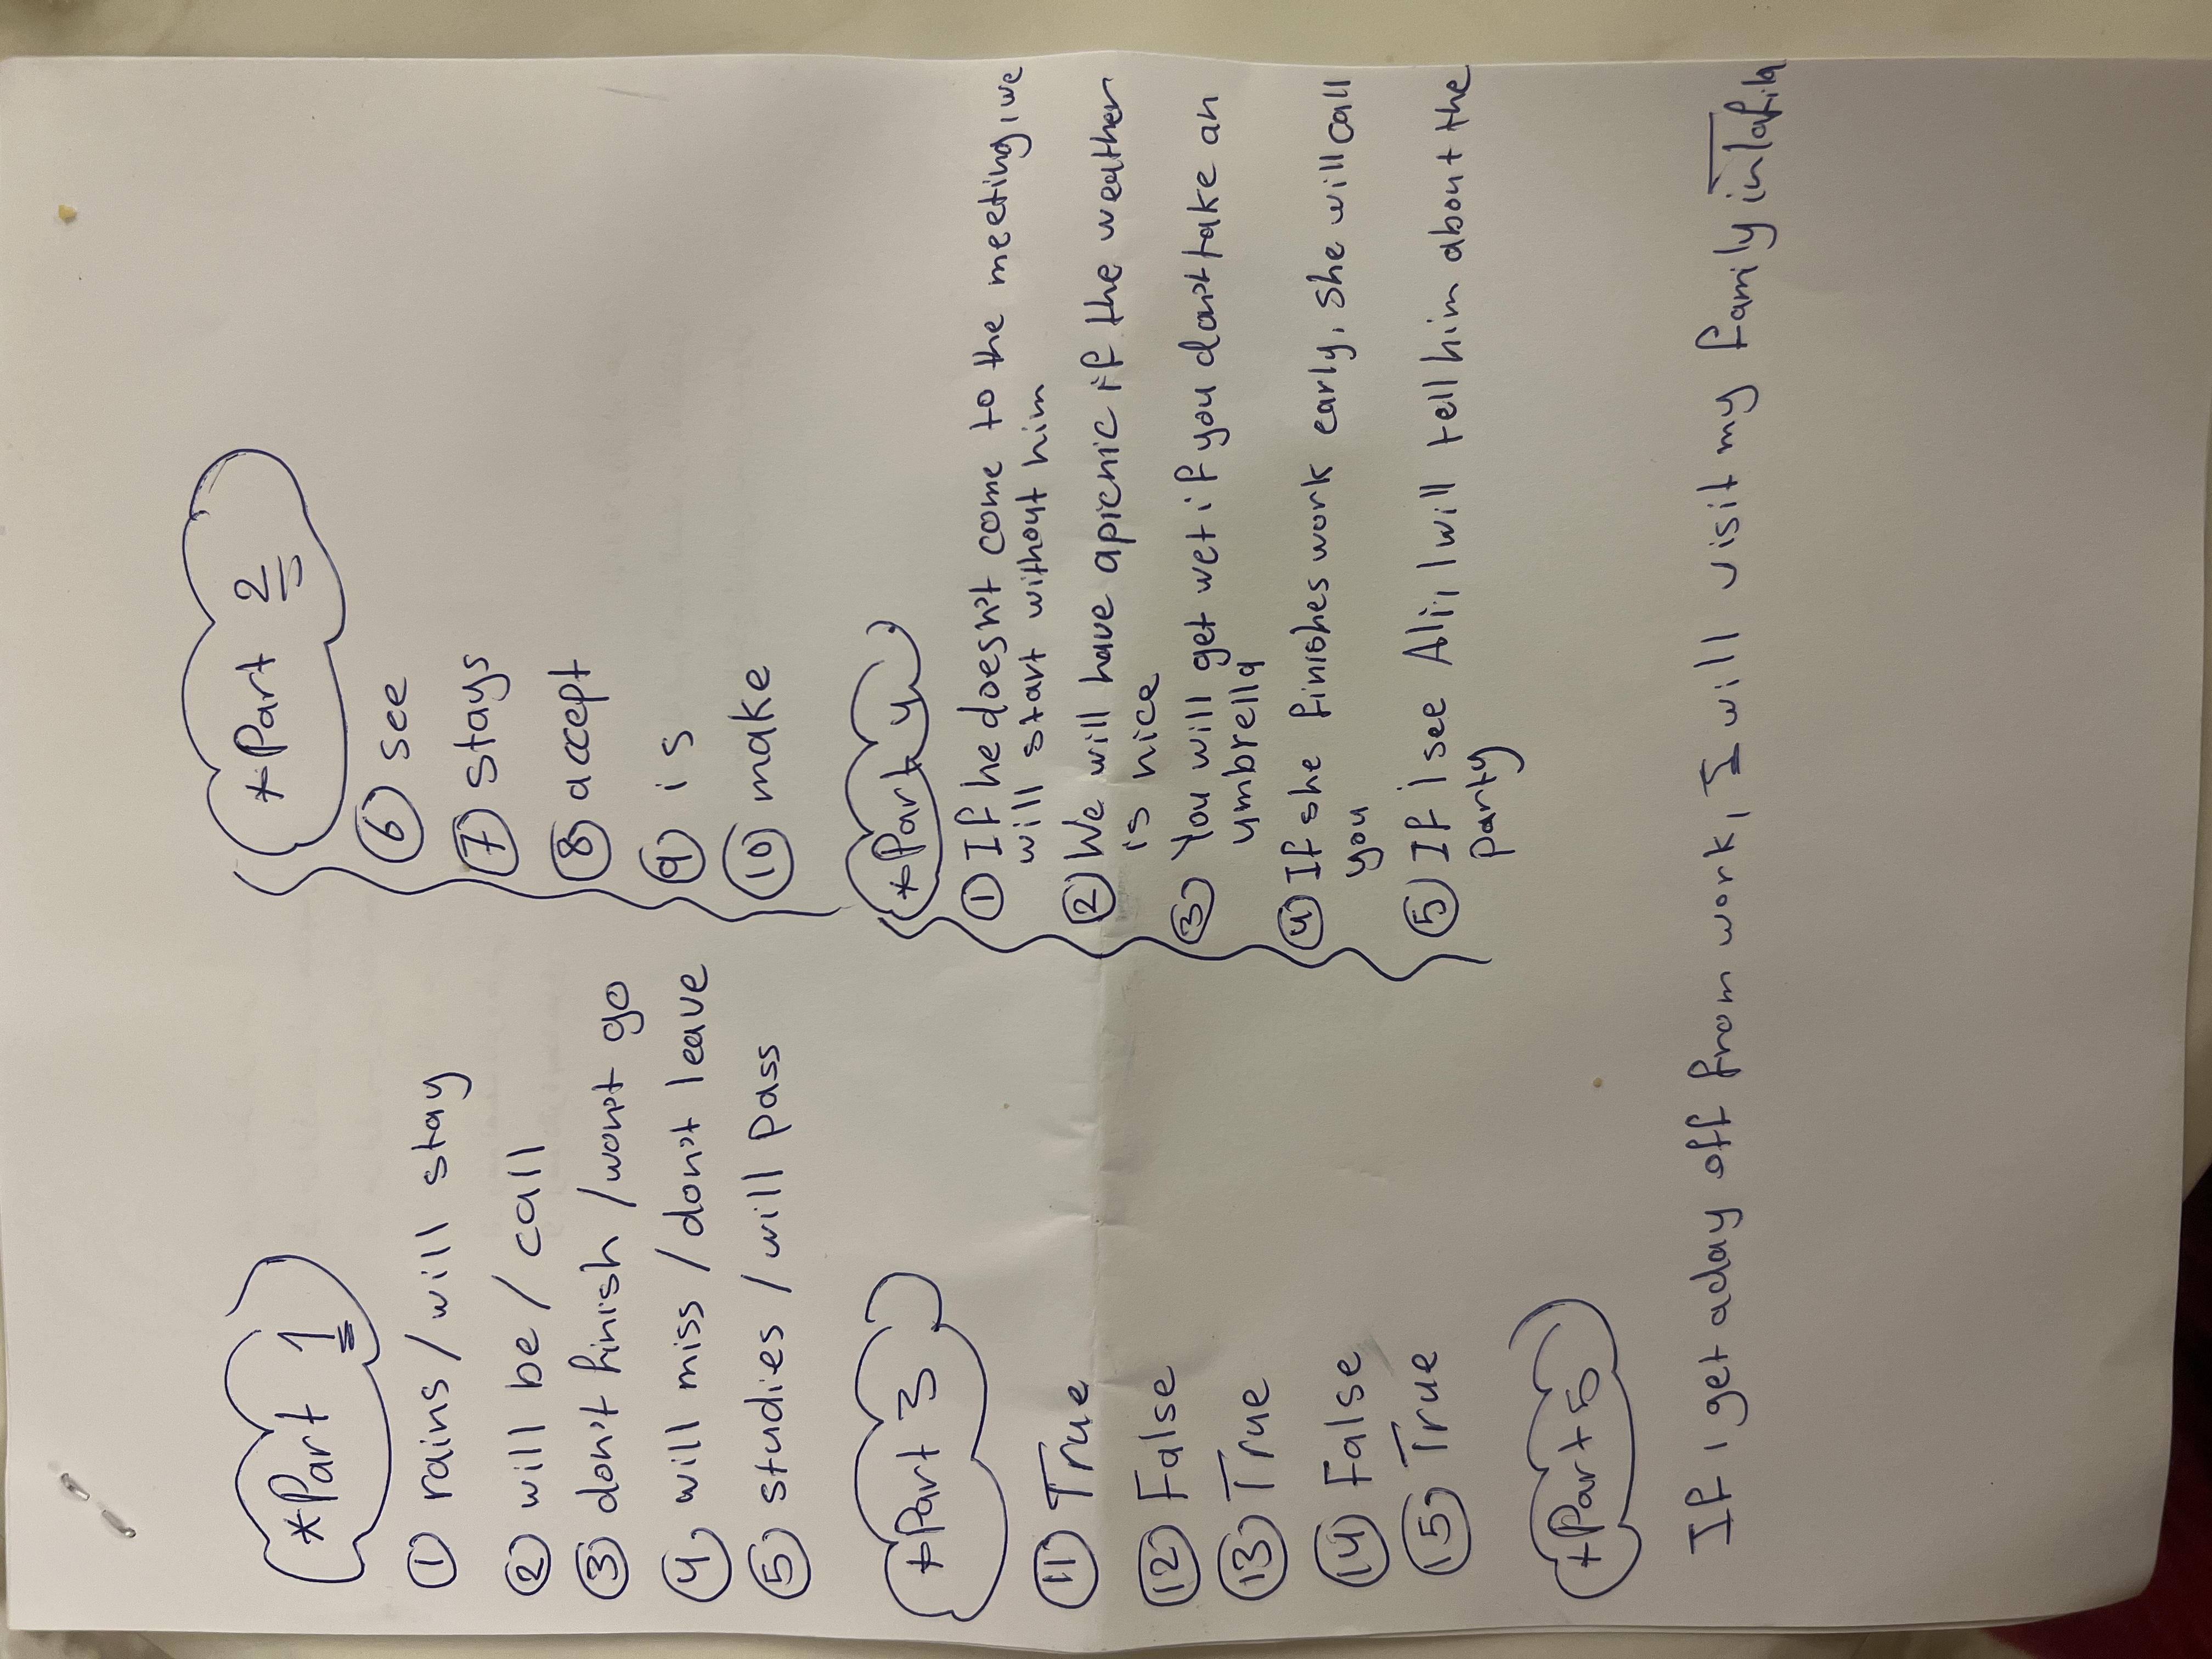 *Part 1
① rains / will stay
② will be / call
③ don't finish / won't go
④ will miss / don't leave
⑤ studies / will pass
*Part 2
⑥ see
⑦ stays
⑧ accept
⑨ is
⑩ make
*Part 3
⑪ True
⑫ False
⑬ True
⑭ False
⑮ True
*Part 4
① If he doesn't come to the meeting, we
will start without him
② We will have apicnic if the weather
is nice
③ You will get wet if you don't take an
umbrella
④ If she finishes work early, she will call
you
⑤ If I see Ali, I will tell him about the
party
*Part 5
If I get aday off from work, I will visit my family in Tafila